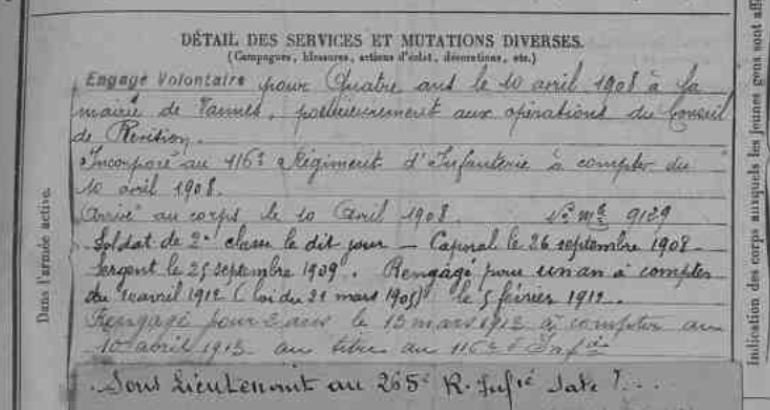 DÉTAIL DES SERVICES ET MUTATIONS DIVERSES.
(Campagnes, blessures, actions d'éclat, décorations, etc.)
Engagé Volontaire pour Quatre ans le 10 avril 1908 à la
mairie de Vannes, postérieurement aux opérations du Conseil
de Révision.
Incorporé au 116e Régiment d'Infanterie à compter du
10 avril 1908.
Arrivé au corps le 10 Avril 1908. No mle 9129
Soldat de 2e classe le dit jour – Caporal le 26 septembre 1908 –
Sergent le 25 septembre 1909. Rengagé pour un an à compter
du 10 avril 1912 (loi du 21 mars 1905) le 5 février 1912.
Rengagé pour 2 ans le 13 mars 1913 à compter du
10 avril 1913 au titre du 116e d'Infie
Sous Lieutenant au 265e R. Infie date ?...
Dans l'armée active.
Indication des corps auxquels les jeunes gens sont